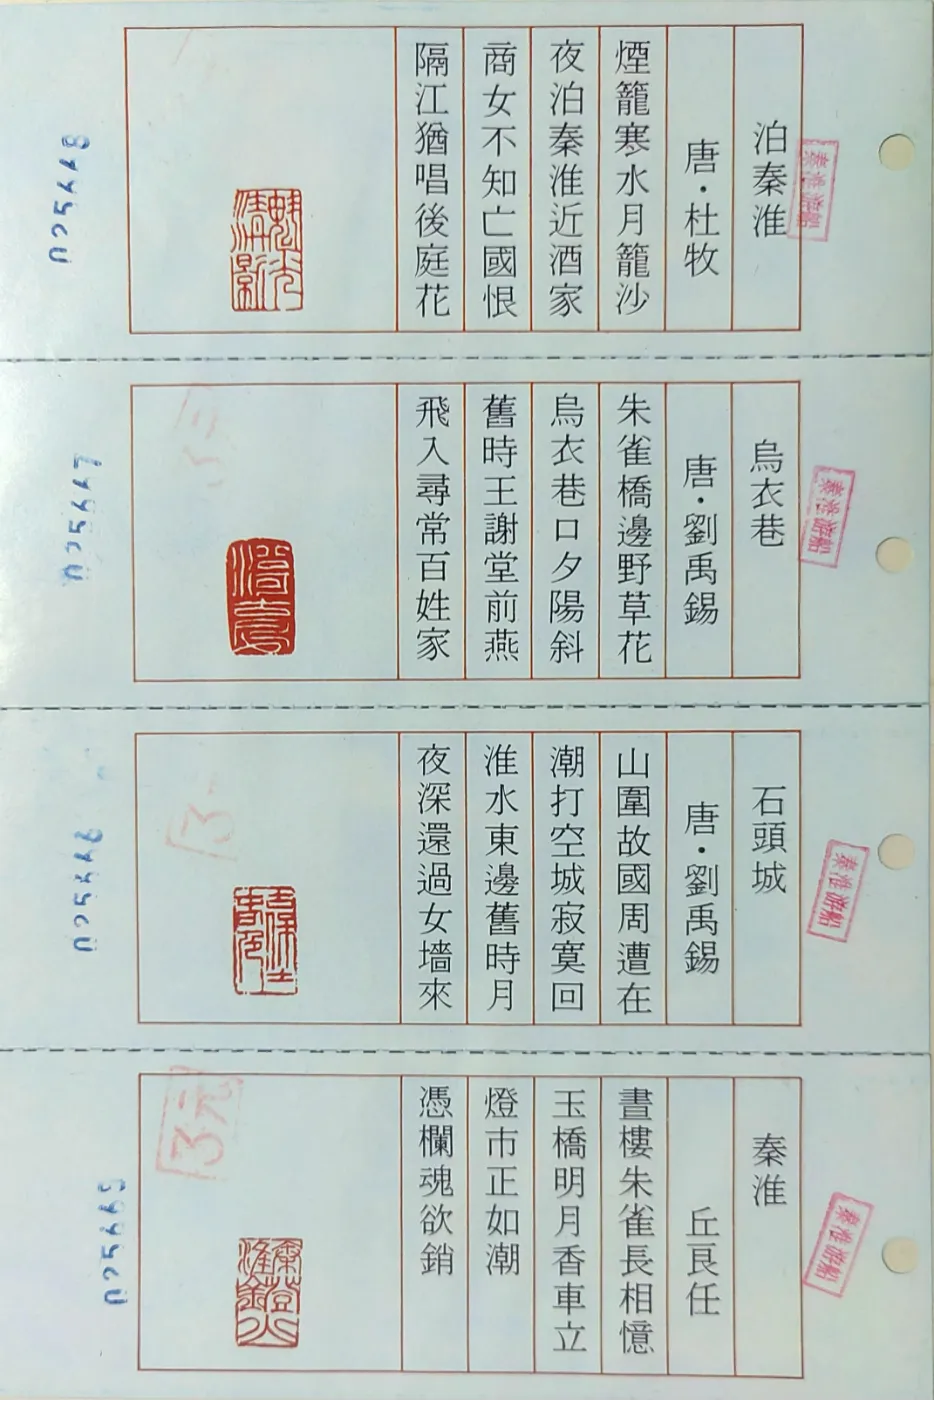 泊秦淮
唐·杜牧
煙籠寒水月籠沙
夜泊秦淮近酒家
商女不知亡國恨
隔江猶唱後庭花
秦淮游船
烏衣巷
唐·劉禹錫
朱雀橋邊野草花
烏衣巷口夕陽斜
舊時王謝堂前燕
飛入尋常百姓家
秦淮游船
石頭城
唐·劉禹錫
山圍故國周遭在
潮打空城寂寞回
淮水東邊舊時月
夜深還過女墻來
秦淮游船
秦淮
丘良任
晝樓朱雀長相憶
玉橋明月香車立
燈市正如潮
憑欄魂欲銷
秦淮游船
3元